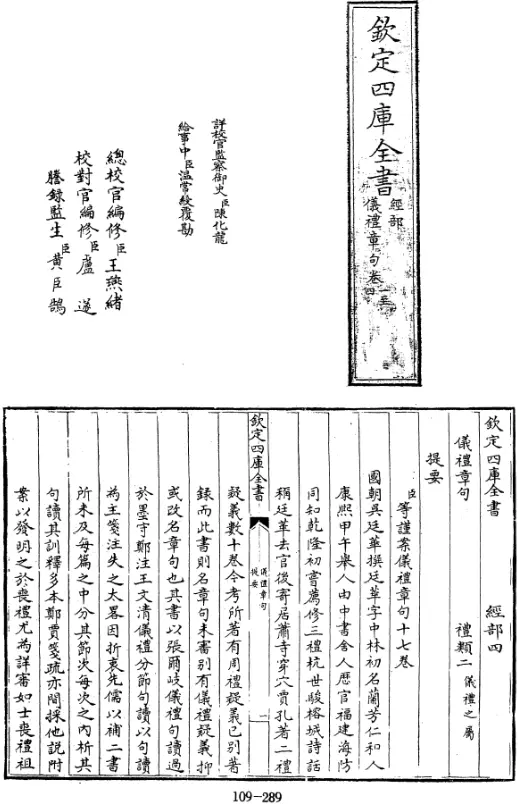 欽定四庫全書 經部 儀禮章句卷一至四
詳校官監察御史臣陳化龍
給事中臣溫常綬覆勘
總校官編修臣王燕緒
校對官編修臣盧遂
謄錄監生臣黃臣鵠
欽定四庫全書 經部四
儀禮章句 禮類二儀禮之屬
提要
臣等謹案儀禮章句十七卷
國朝吳廷華撰廷華字中林初名蘭芳仁和人
康熙甲午舉人由中書舍人歷官福建海防
同知乾隆初嘗薦修三禮杭世駿榕城詩話
稱廷華去官後寄居蕭寺穿穴賈孔著二禮
欽定四庫全書 儀禮章句 提要 一
疑義數十卷今考所著有周禮疑義已別著
錄而此書則名章句未審別有儀禮疑義抑
或改名章句也其書以張爾岐儀禮句讀過
於墨守鄭注王文清儀禮分節句讀以句讀
為主箋注失之太畧因折衷先儒以補二書
所未及每篇之中分其節次每次之內析其
句讀其訓釋多本鄭賈箋疏亦間採他説附
案以發明之於喪禮尤為詳審如士喪禮祖
109-289